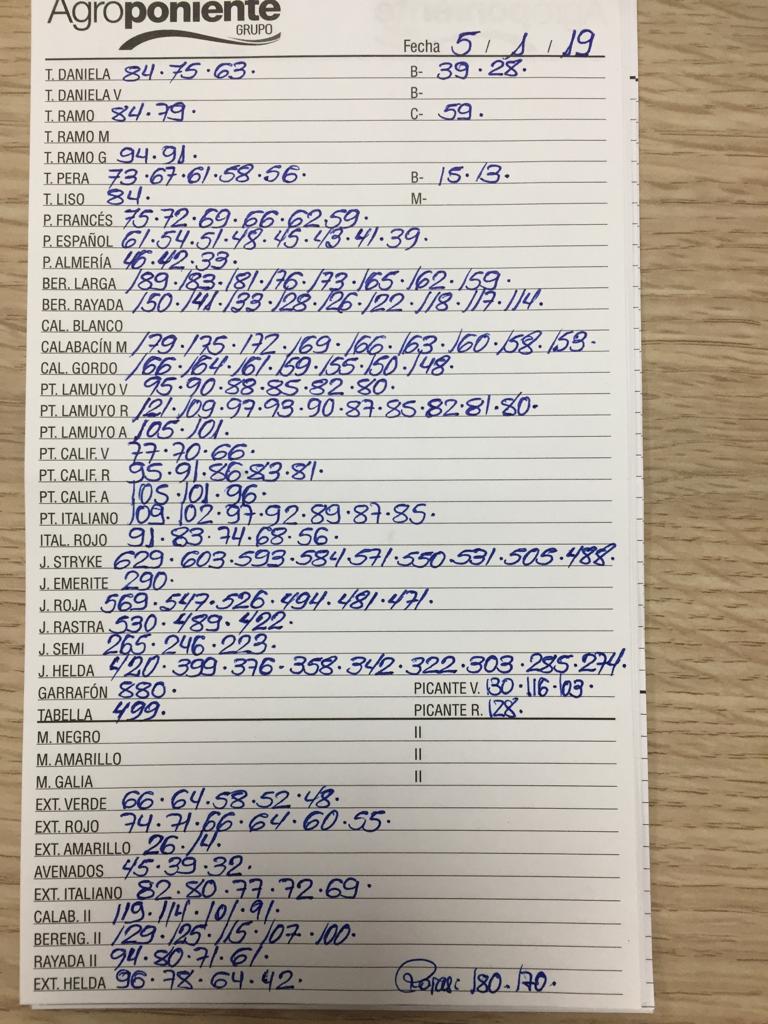 Agroponiente
GRUPO
Fecha 5 / 1 / 19
T. DANIELA 84·75·63· B- 39·28·
T. DANIELA V B-
T. RAMO 84·79· C- 59·
T. RAMO M
T. RAMO G 94·91·
T. PERA 73·67·61·58·56· B- 15·13·
T. LISO 84· M-
P. FRANCÉS 75·72·69·66·62·59·
P. ESPAÑOL 61·54·51·48·45·43·41·39·
P. ALMERÍA 46·42·33·
BER. LARGA 189·183·181·176·173·165·162·159·
BER. RAYADA 150·141·133·128·126·122·118·117·114·
CAL. BLANCO
CALABACÍN M 179·175·172·169·166·163·160·158·153·
CAL. GORDO 166·164·161·159·155·150·148·
PT. LAMUYO V 95·90·88·85·82·80·
PT. LAMUYO R 121·109·97·93·90·87·85·82·81·80·
PT. LAMUYO A 105·101·
PT. CALIF. V 77·70·66·
PT. CALIF. R 95·91·86·83·81·
PT. CALIF. A 105·101·96·
PT. ITALIANO 109·102·97·92·89·87·85·
ITAL. ROJO 91·83·74·68·56·
J. STRYKE 629·603·593·584·571·550·531·505·488·
J. EMERITE 290·
J. ROJA 569·547·526·494·481·471·
J. RASTRA 530·489·422·
J. SEMI 265·246·223·
J. HELDA 420·399·376·358·342·322·303·285·274·
GARRAFÓN 880· PICANTE V. 130·116·103·
TABELLA 499· PICANTE R. 128·
M. NEGRO II
M. AMARILLO II
M. GALIA II
EXT. VERDE 66·64·58·52·48·
EXT. ROJO 74·71·66·64·60·55·
EXT. AMARILLO 26·14·
AVENADOS 45·39·32·
EXT. ITALIANO 82·80·77·72·69·
CALAB. II 119·114·101·91·
BERENG. II 129·125·115·107·100·
RAYADA II 94·80·71·61·
EXT. HELDA 96·78·64·42· 180·170·